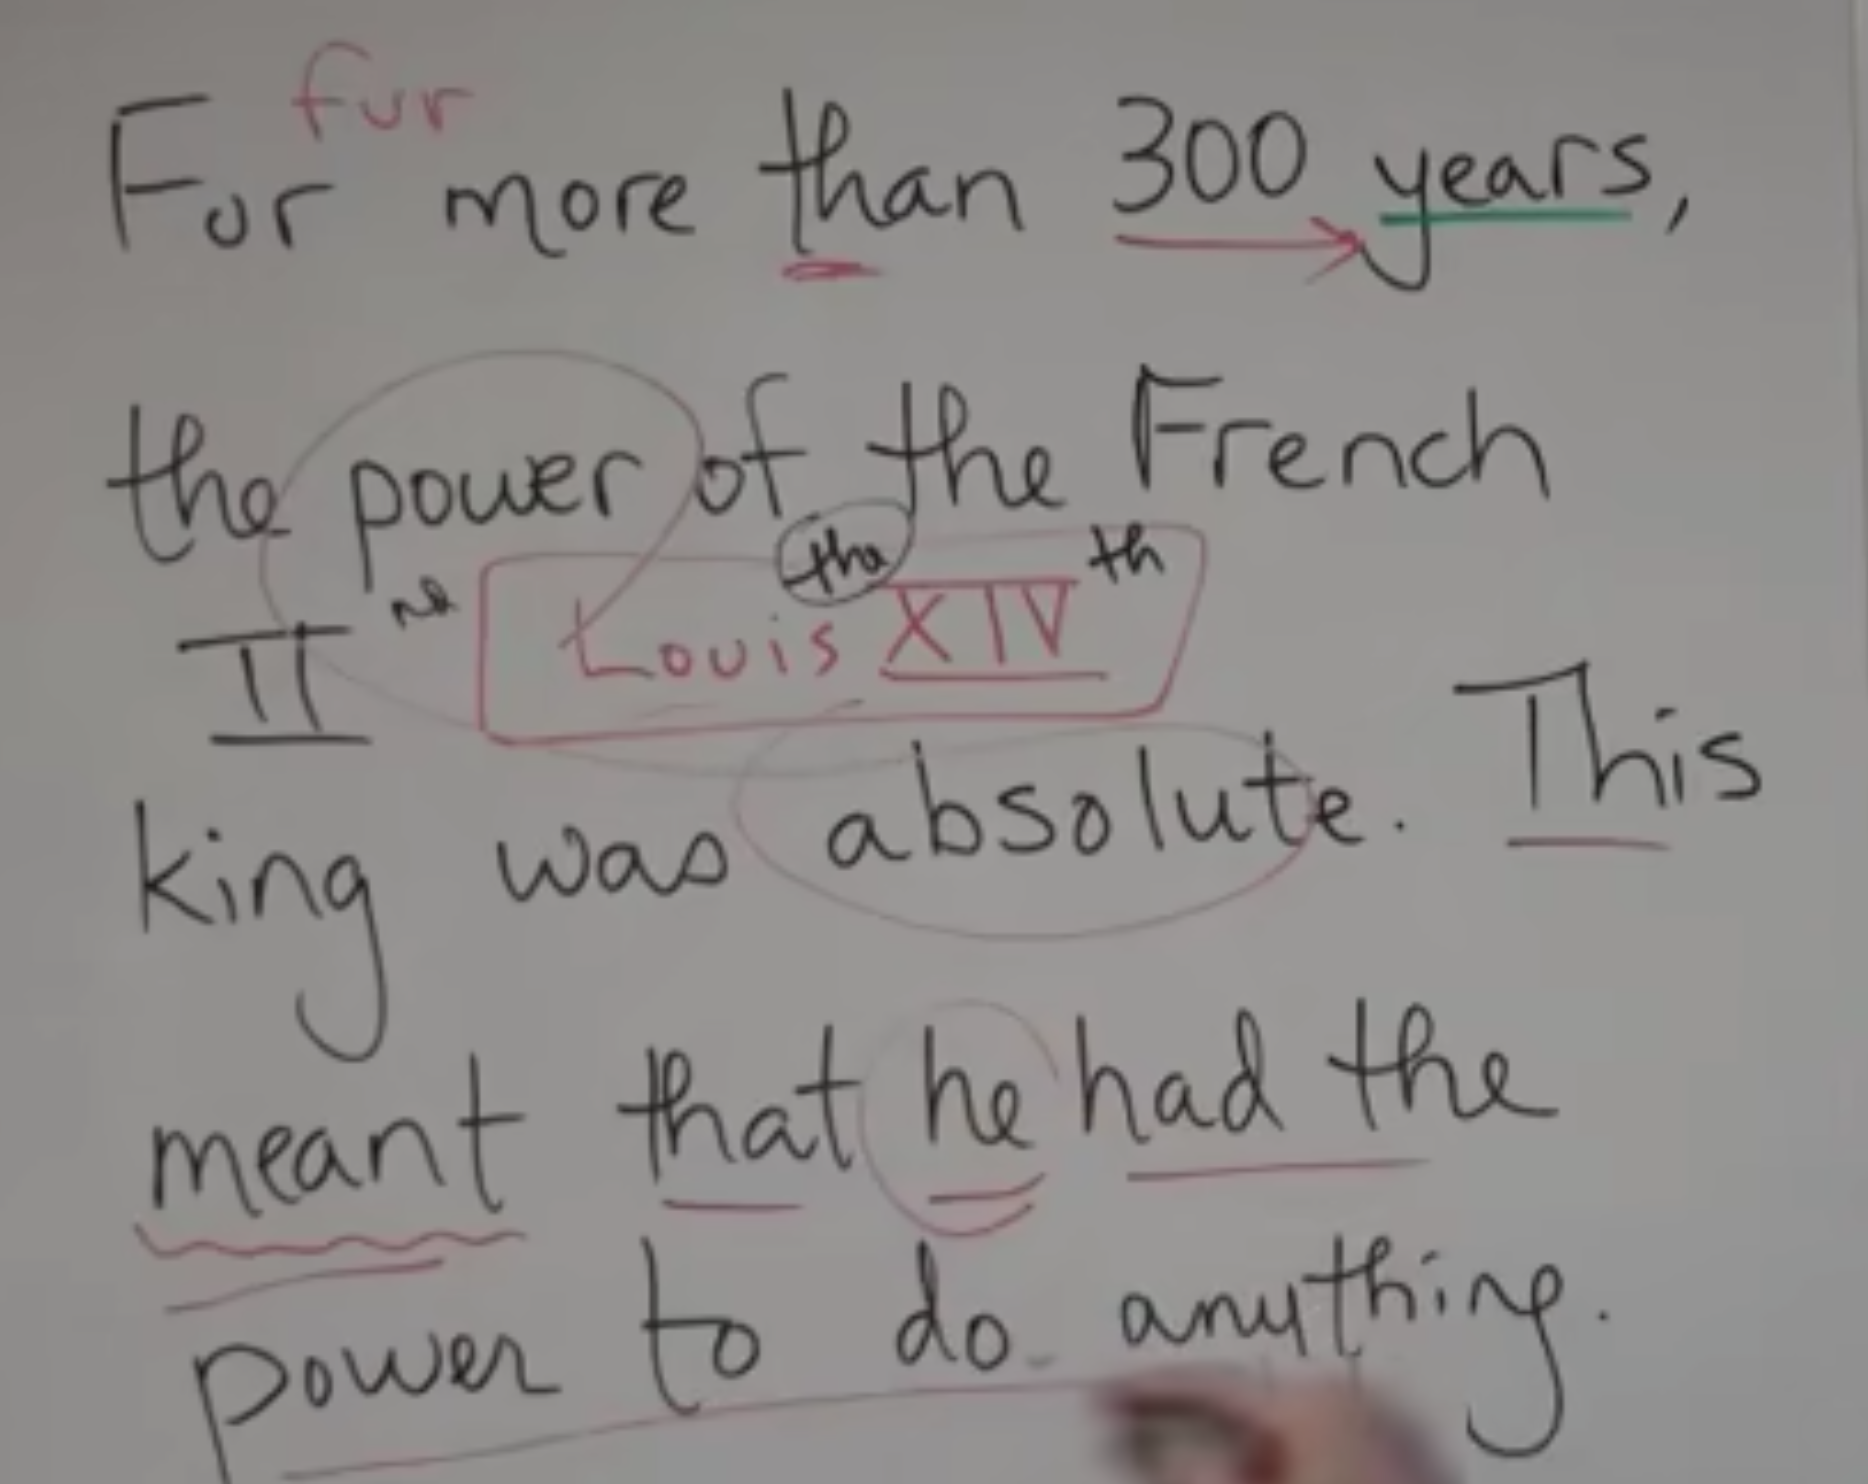 fur
For more than 300 years,
the power of the French
II nd Louis the XIV th
king was absolute. This
meant that he had the
power to do anything.